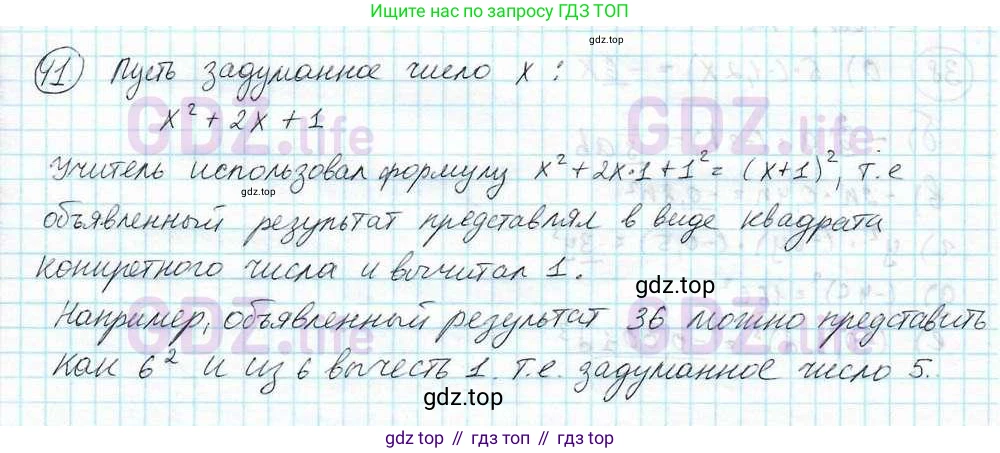 Ищите по запросу ГДЗ ТОП
gdz.top
41) Пусть задуманное число x:
x² + 2x + 1
GDZ.life GDZ.life
Учитель использовал формулу x² + 2x·1 + 1² = (x+1)², т.е
объявленный результат представлял в виде квадрата
конкретного числа и вычитал 1.
gdz.top
GDZ.life GDZ.life
Например, объявленный результат 36 можно представить
как 6² и из 6 вычесть 1. т.е. задуманное число 5.
gdz.top
gdz.top // гдз топ // gdz top